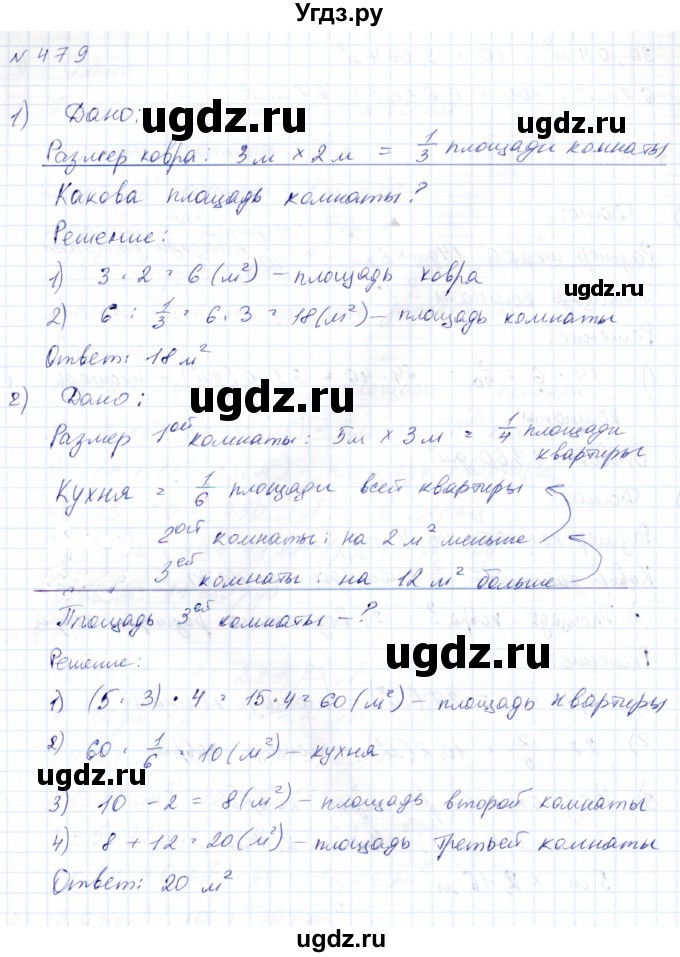 Угдз.ру
№ 479
ugdz.ru
1) Дано:
Размер ковра: 3м × 2м = 1/3 площади комнаты
Какова площадь комнаты?
Решение:
1) 3 · 2 = 6 (м²) – площадь ковра
ugdz.ru
2) 6 : 1/3 = 6 · 3 = 18 (м²) – площадь комнаты
Ответ: 18 м²
2) Дано:
ugdz.ru
Размер 1ой комнаты: 5м × 3м = 1/4 площади
квартиры
Кухня = 1/6 площади всей квартиры
ugdz.ru
2ой комнаты: на 2 м² меньше
3ей комнаты: на 12 м² больше
Площадь 3ей комнаты – ?
ugdz.ru
Решение:
1) (5 · 3) · 4 = 15 · 4 = 60 (м²) – площадь квартиры
2) 60 · 1/6 = 10 (м²) – кухня
ugdz.ru
3) 10 – 2 = 8 (м²) – площадь второй комнаты
4) 8 + 12 = 20 (м²) – площадь третьей комнаты
Ответ: 20 м²
ugdz.ru
ugdz.ru